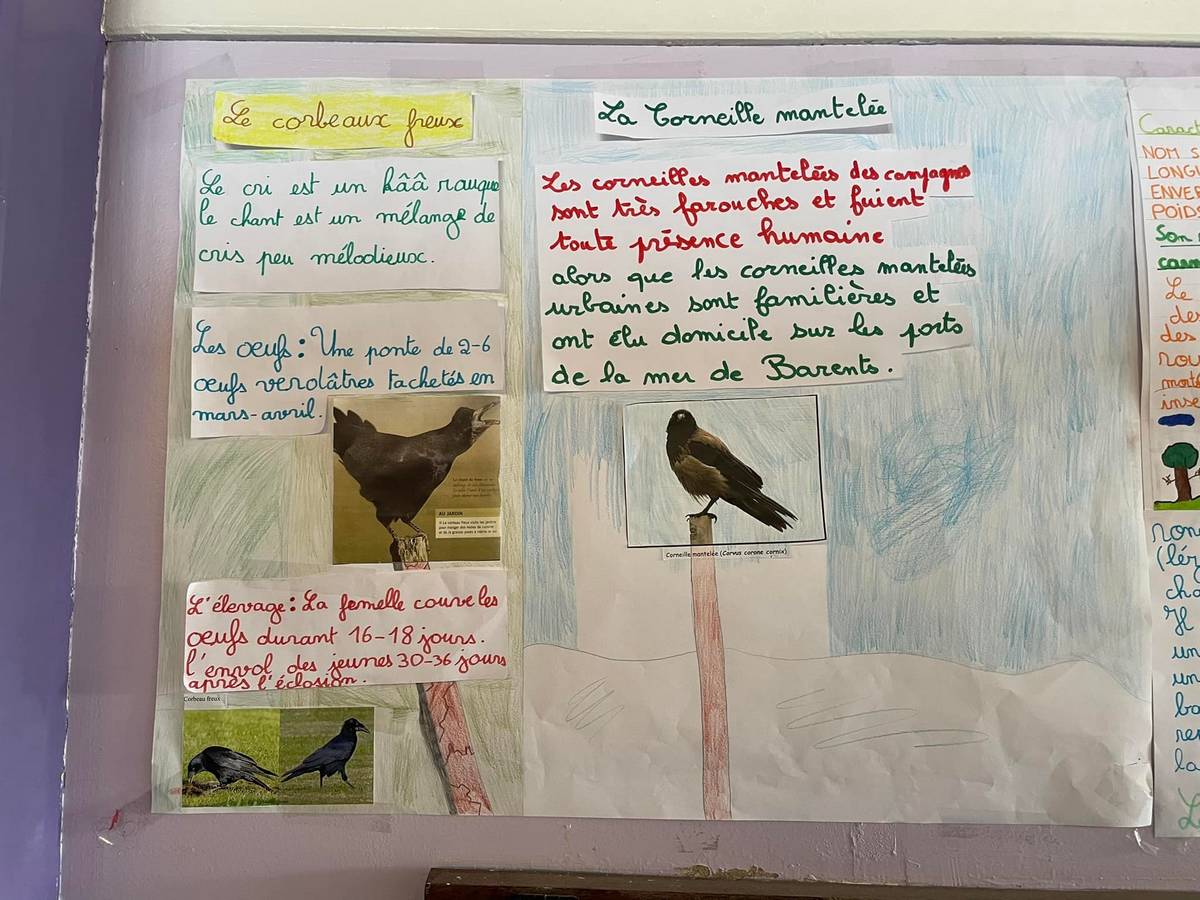 Le corbeaux freux
Le cri est un kââ rauque
le chant est un mélange de
cris peu mélodieux.
Les oeufs : Une ponte de 2-6
oeufs verdâtres tachetés en
mars-avril.
AU JARDIN
L'élevage : La femelle couve les
oeufs durant 16-18 jours.
l'envol des jeunes 30-36 jours
après l'éclosion.
Corbeau freux
La Corneille mantelée
Les corneilles mantelées des campagnes
sont très farouches et fuient
toute présence humaine
alors que les corneilles mantelées
urbaines sont familières et
ont élu domicile sur les ports
de la mer de Barents.
Corneille mantelée (Corvus corone cornix)
NOM S
LONGU
ENVE
POIDS
Son
Le
des
des